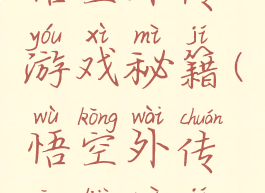 yóu xì mì jí
游戏秘籍(
wù kōng wài chuán
悟空外传